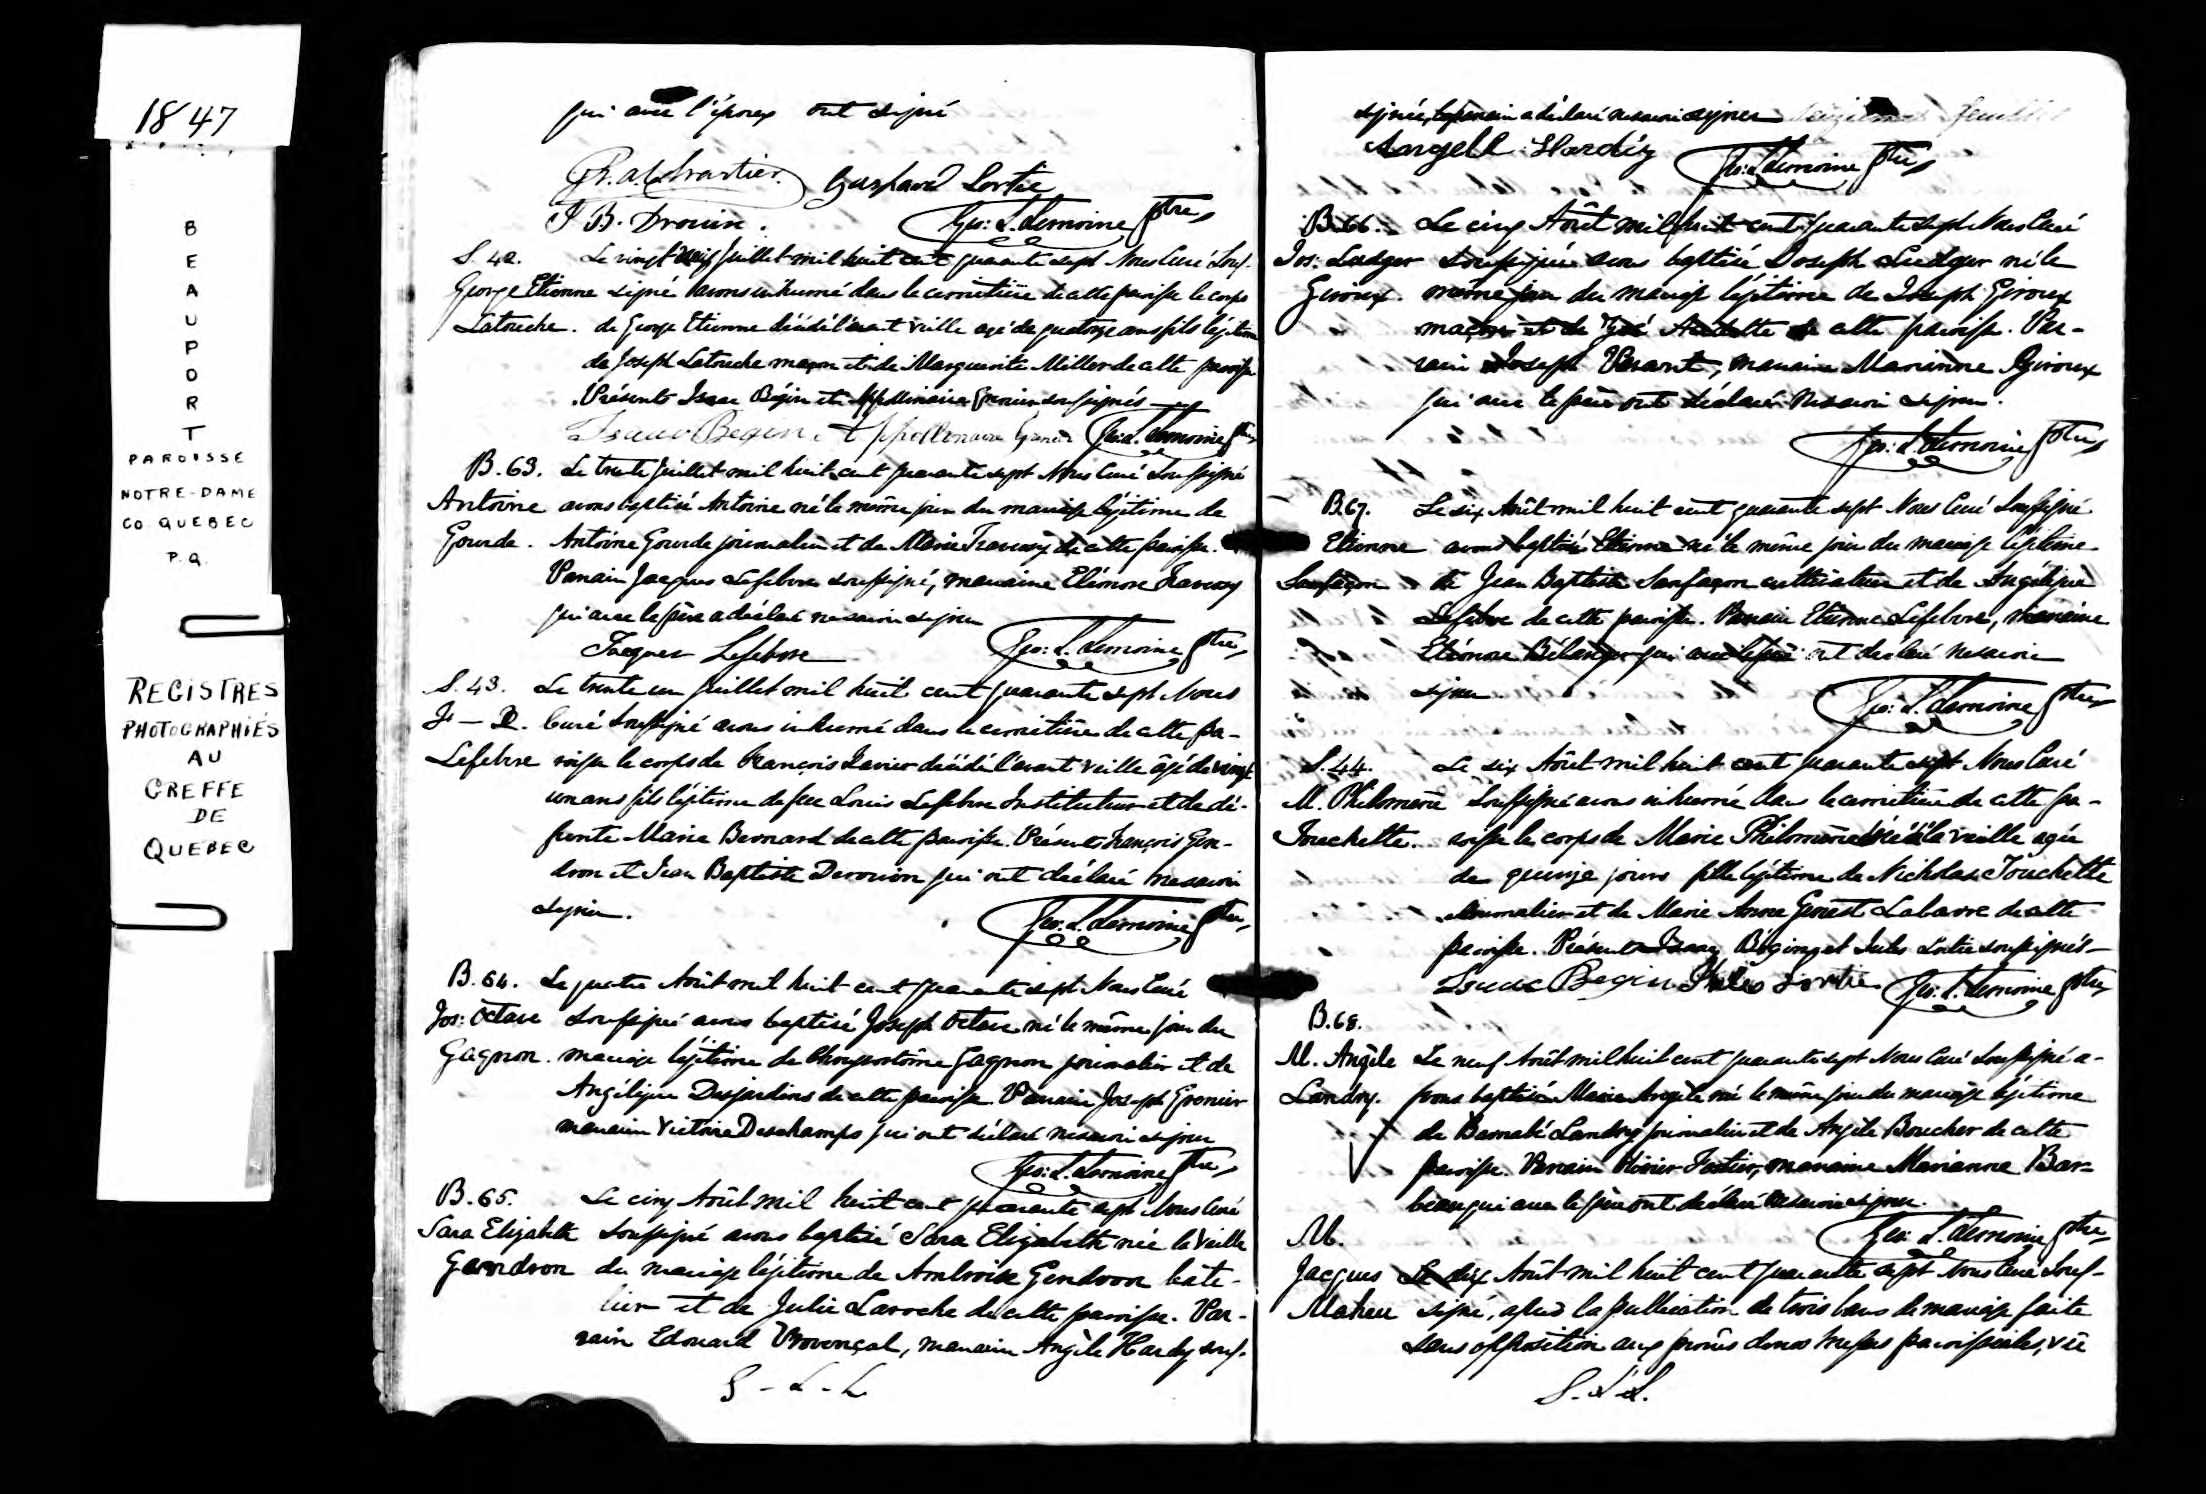 1847
BEAUPORT
PAROISSE
NOTRE-DAME
CO. QUEBEC
P.Q.
REGISTRES
PHOTOGRAPHIÉS
AU
GREFFE
DE
QUEBEC
qui avec l'époux ont signé
Gaspard Lortie
J B. Drouin. Geo: L. Lemoine Ptre
S. 42. Le vingt Juillet mil huit cent quarante sept Nous Curé Sous-
George Etienne signé avons inhumé dans le cemetière de cette paroisse le corps
Latouche. de George Etienne décédé l'avant veille agé de quatorze ans fils légitime
de Joseph Latouche maçon et de Marguerite Miller de cette paroisse
Présents Isaac Bégin et Appollinaire Grenier soussignés
Isaac Begin Appollinaire Grenier Geo: L. Lemoine Ptre
B. 63. Le trente Juillet mil huit cent quarante sept Nous Curé Soussigné
Antoine avons baptisé Antoine né le même jour du mariage légitime de
Gourde. Antoine Gourde journalier et de Marie Traversy de cette paroisse.
Parrain Jacques Lefebvre soussigné, marraine Eléonore Traversy
qui avec le père a déclaré ne savoir signer
Jacques Lefebvre Geo: L. Lemoine Ptre
S. 43. Le trente un Juillet mil huit cent quarante sept Nous
Curé Soussigné avons inhumé dans le cemetière de cette pa-
Lefebvre roisse le corps de François Xavier décédé l'avant veille âgé de vingt
un ans fils légitime de feu Louis Lefebvre Instituteur et de dé-
funte Marie Bernard de cette paroisse. Présents François Gen-
dron et Jean Baptiste Derouion qui ont déclaré ne savoir
signer. Geo: L. Lemoine Ptre
B. 64. Le quatre Août mil huit cent quarante sept Nous Curé
Jos: Octave Soussigné avons baptisé Joseph Octave né le même jour du
Gagnon. mariage légitime de Chrysostôme Gagnon journalier et de
Angélique Desjardins de cette paroisse Parrain Joseph Grenier
marraine Victoire Deschamps qui ont déclaré ne savoir signer
Geo: L. Lemoine Ptre
B. 65. Le cinq Août mil huit cent quarante sept Nous Curé
Sara Elizabeth Soussigné avons baptisé Sara Elizabeth née la veille
Gendron du mariage légitime de Ambroise Gendron bate-
lier et de Julie Laroche de cette paroisse. Par-
rain Edouard Provençal, marraine Angèle Hardy sous-
G - L - L
signée, le parrain a déclaré ne savoir signer
Angell Hardy Geo: L. Lemoine Ptre
B. 66. Le cinq Août mil huit cent quarante sept Nous Curé
Jos: Ludger Soussigné avons baptisé Joseph Ludger né le
Giroux. même jour du mariage légitime de Joseph Giroux
maçon et de de cette paroisse. Par-
rain Joseph Parant, marraine Marianne Giroux
qui avec le père ont déclaré ne savoir signer.
Geo: L. Lemoine Ptre
B. 67. Le six Août mil huit cent quarante sept Nous Curé Soussigné
Etienne avons baptisé Etienne né le même jour du mariage légitime
Sanfaçon de Jean Baptiste Sanfaçon cultivateur et de Angélique
Lefebvre de cette paroisse. Parrain Etienne Lefebvre, marraine
Eléonore Bélanger qui avec le père ont déclaré ne savoir
signer. Geo: L. Lemoine Ptre
S. 44. Le six Août mil huit cent quarante sept Nous Curé
M. Philomène Soussigné avons inhumé dans le cemetière de cette pa-
Touchette. roisse le corps de Marie Philomène décédé la veille agée
de quinze jours fille légitime de Nicholas Touchette
journalier et de Marie Anne Genest Labarre de cette
paroisse. Présents Isaac Bégin et Jules Lortie soussignés
Isaac Begin Jules Lortie Geo: L. Lemoine Ptre
B. 68.
M. Angèle Le neuf Août mil huit cent quarante sept Nous Curé Soussigné a-
Landry. vons baptisé Marie Angèle née le même jour du mariage légitime
de Barnabé Landry journalier et de Angèle Boucher de cette
paroisse. Parrain Olivier Fortier, marraine Marianne Bar-
beau qui avec le père ont déclaré ne savoir signer.
M. Geo: L. Lemoine Ptre
Jacques Le dix Août mil huit cent quarante sept Nous Curé Sous-
Maheu signé, après la publication de trois bans de mariage faite
sans opposition aux prônes de nos messes paroissiales, vû
G. L. L.